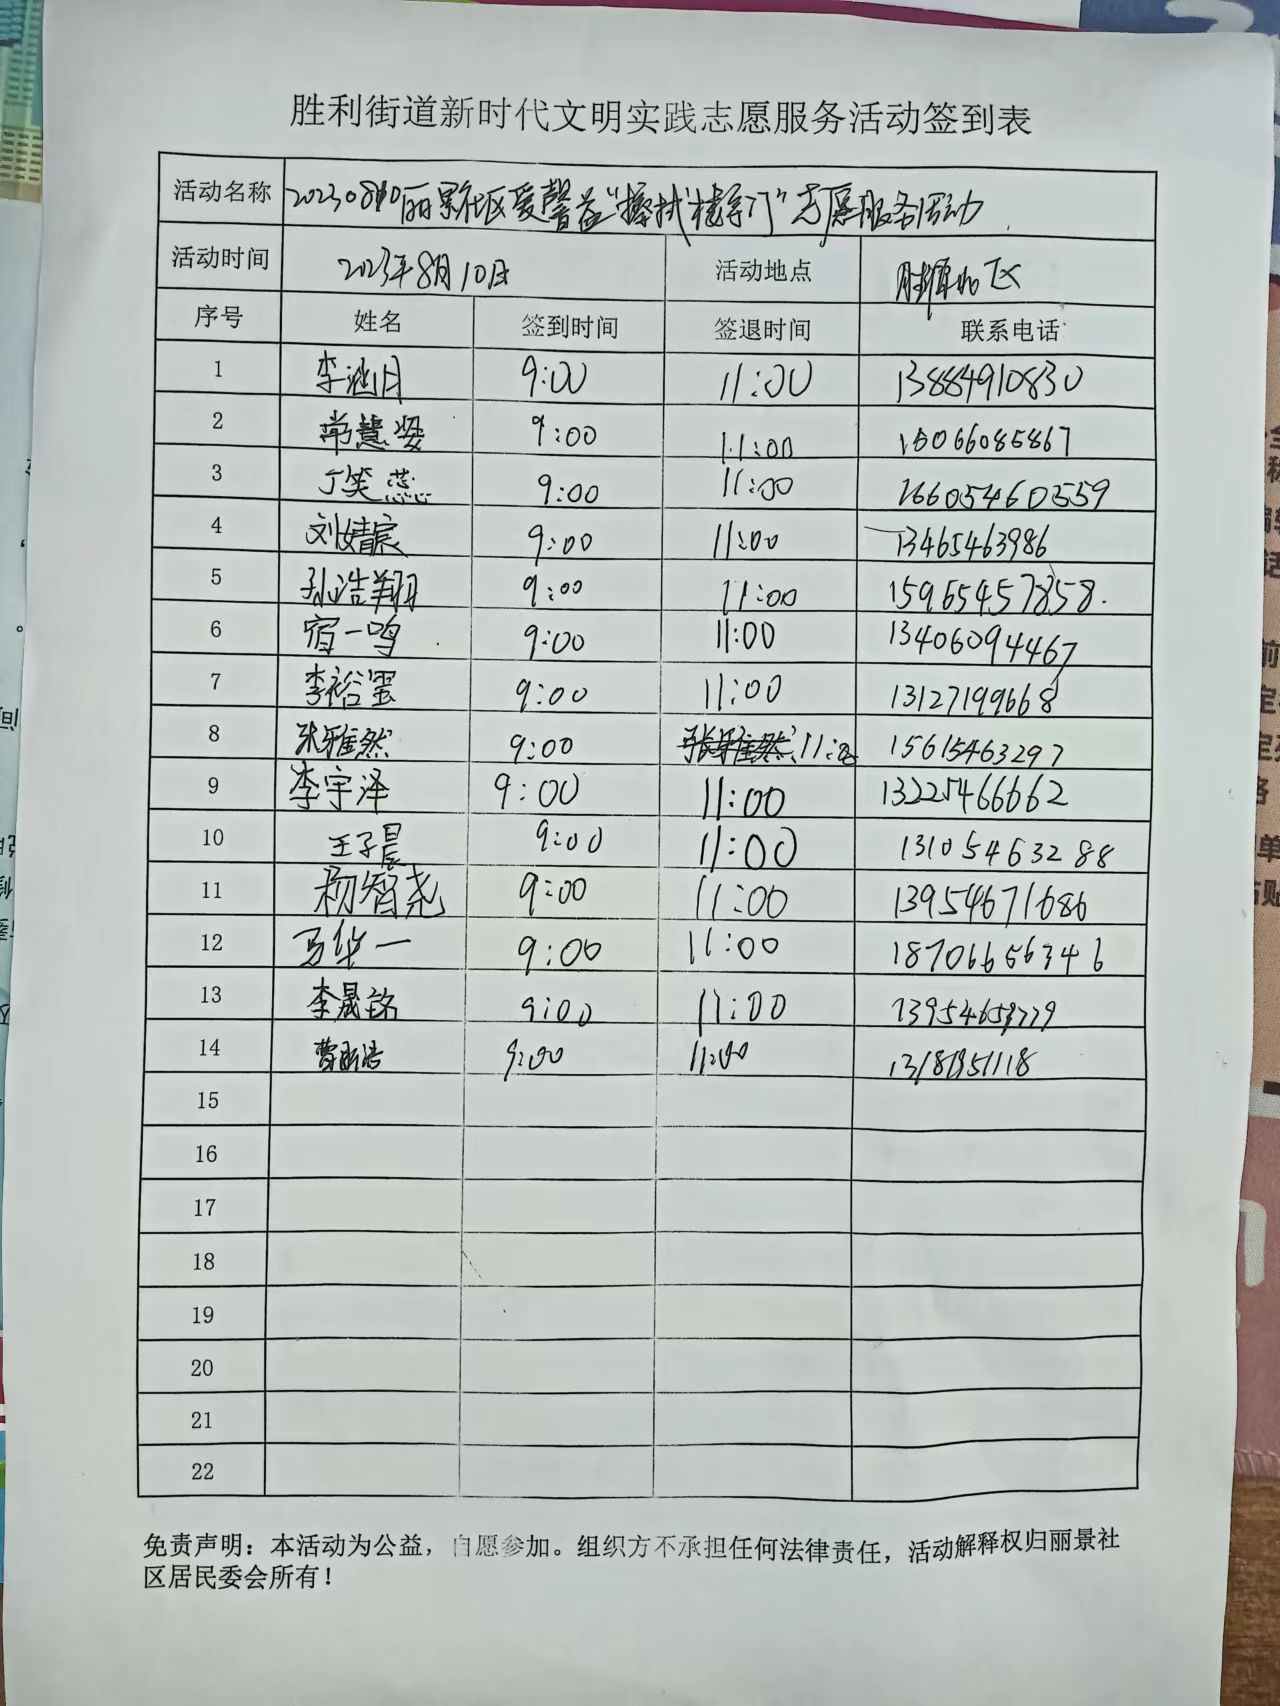 胜利街道新时代文明实践志愿服务活动签到表
活动名称 20230810丽景社区爱馨益“擦拭楼宇门”志愿服务活动
活动时间 2023年8月10日 活动地点
序号 姓名 签到时间 签退时间 联系电话
1 李涵月 9:00 11:00 13884910830
2 常慧姿 9:00 11:00 15066085867
3 丁笑蕊 9:00 11:00 16605460559
4 刘婧宸 9:00 11:00 13465463986
5 孙浩翔 9:00 11:00 15965457858.
6 宿一鸣 9:00 11:00 13406094467
7 李裕 9:00 11:00 13127199668
8 张雅然 9:00 11:00 15615463297
9 李宇泽 9:00 11:00 13225466662
10 王子晨 9:00 11:00 13105463288
11 杨智尧 9:00 11:00 13954671686
12 马华一 9:00 11:00 18706656346
13 李晟铭 9:00 11:00
14 9:00 11:00
15
16
17
18
19
20
21
22
免责声明：本活动为公益，自愿参加。组织方不承担任何法律责任，活动解释权归丽景社
区居民委会所有！